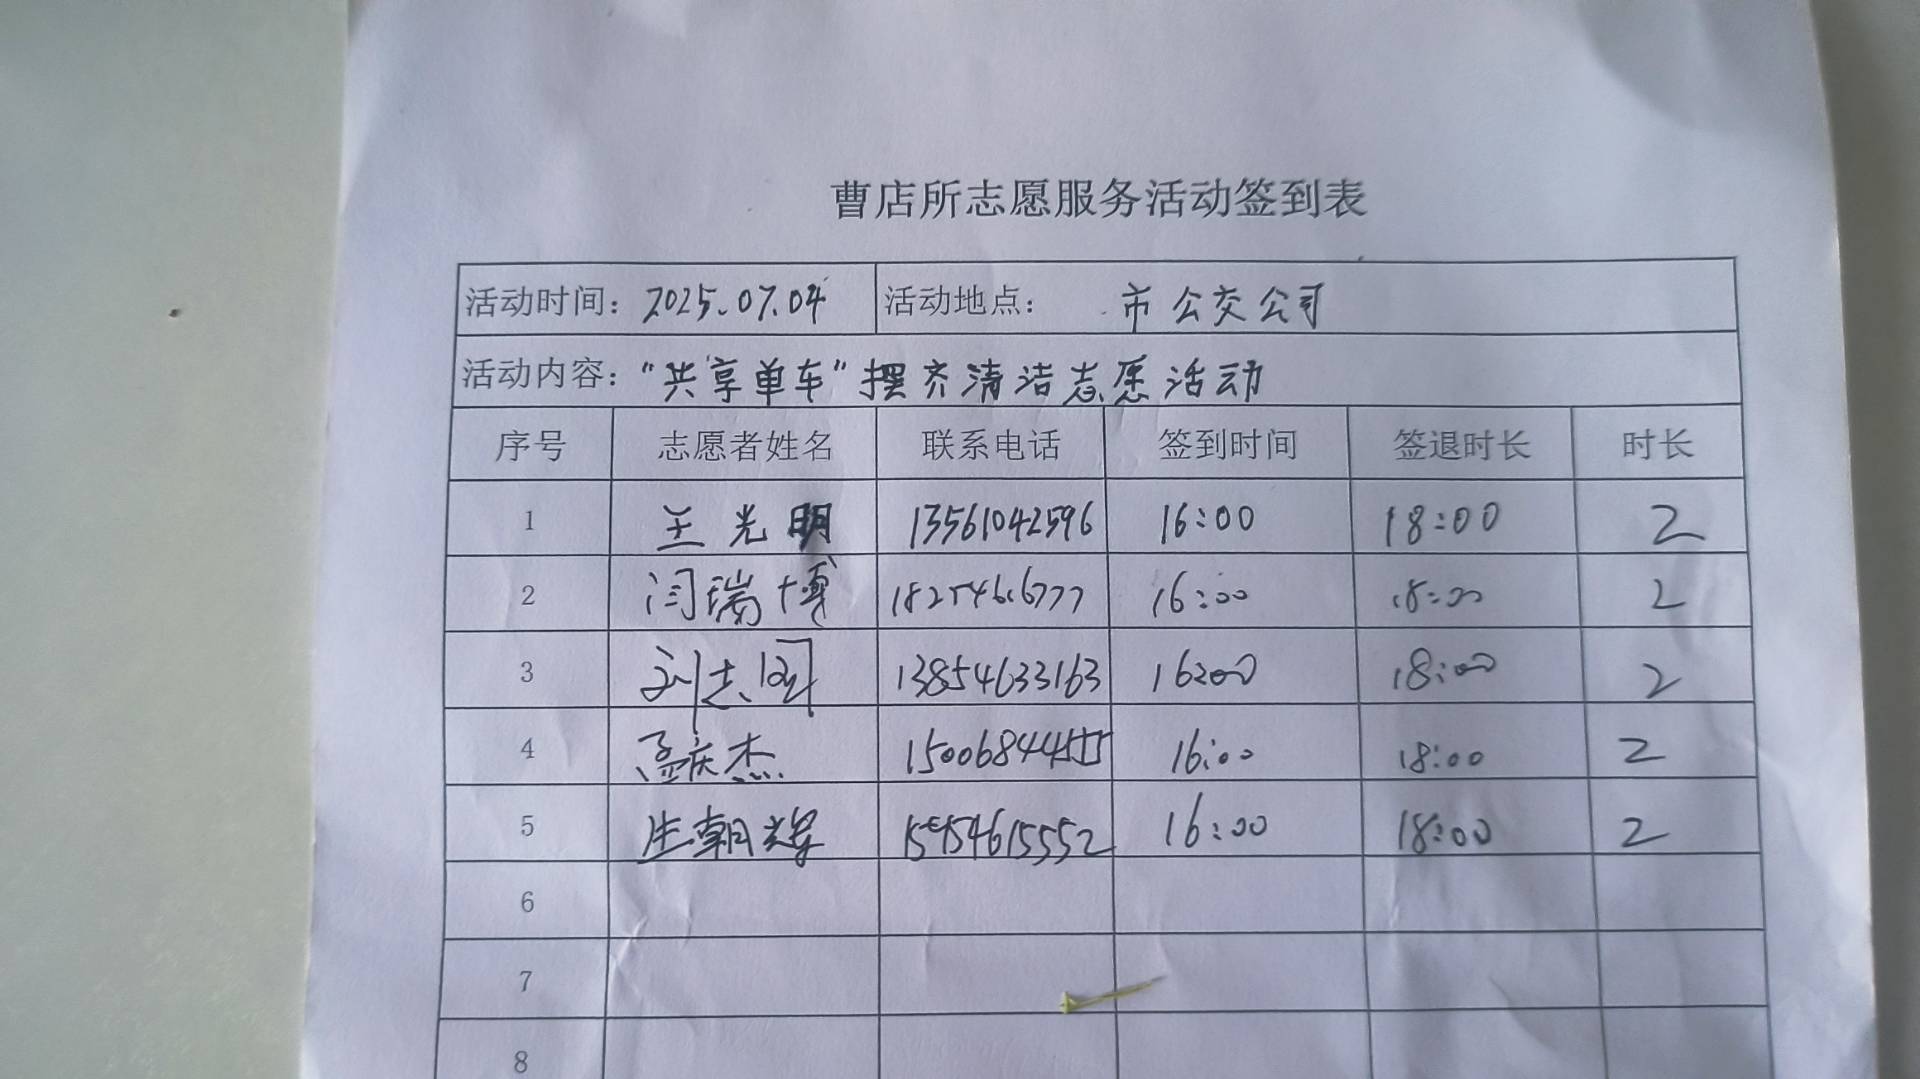 曹店所志愿服务活动签到表
活动时间：2025.07.04 活动地点： 市公交公司
活动内容："共享单车"摆齐清洁志愿活动
序号 志愿者姓名 联系电话 签到时间 签退时长 时长
1 王光明 13561042596 16:00 18:00 2
2 闫瑞博 18254616777 16:00 18:00 2
3 刘志国 13854633163 16:00 18:00 2
4 孟庆杰 15006844555 16:00 18:00 2
5 生朝辉 15954615552 16:00 18:00 2
6
7
8